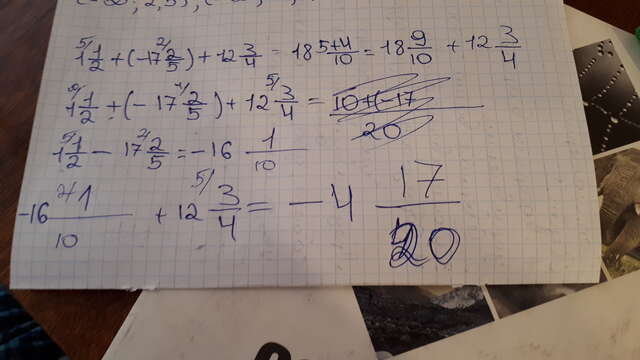 1 1/2 + (-17 2/5) + 12 3/4 = 18 5+4/10 = 18 9/10 + 12 3/4
1 1/2 + (-17 2/5) + 12 3/4 = 10+(-17/20
1 1/2 - 17 2/5 = -16 1/10
-16 1/10 + 12 3/4 = -4 17/20